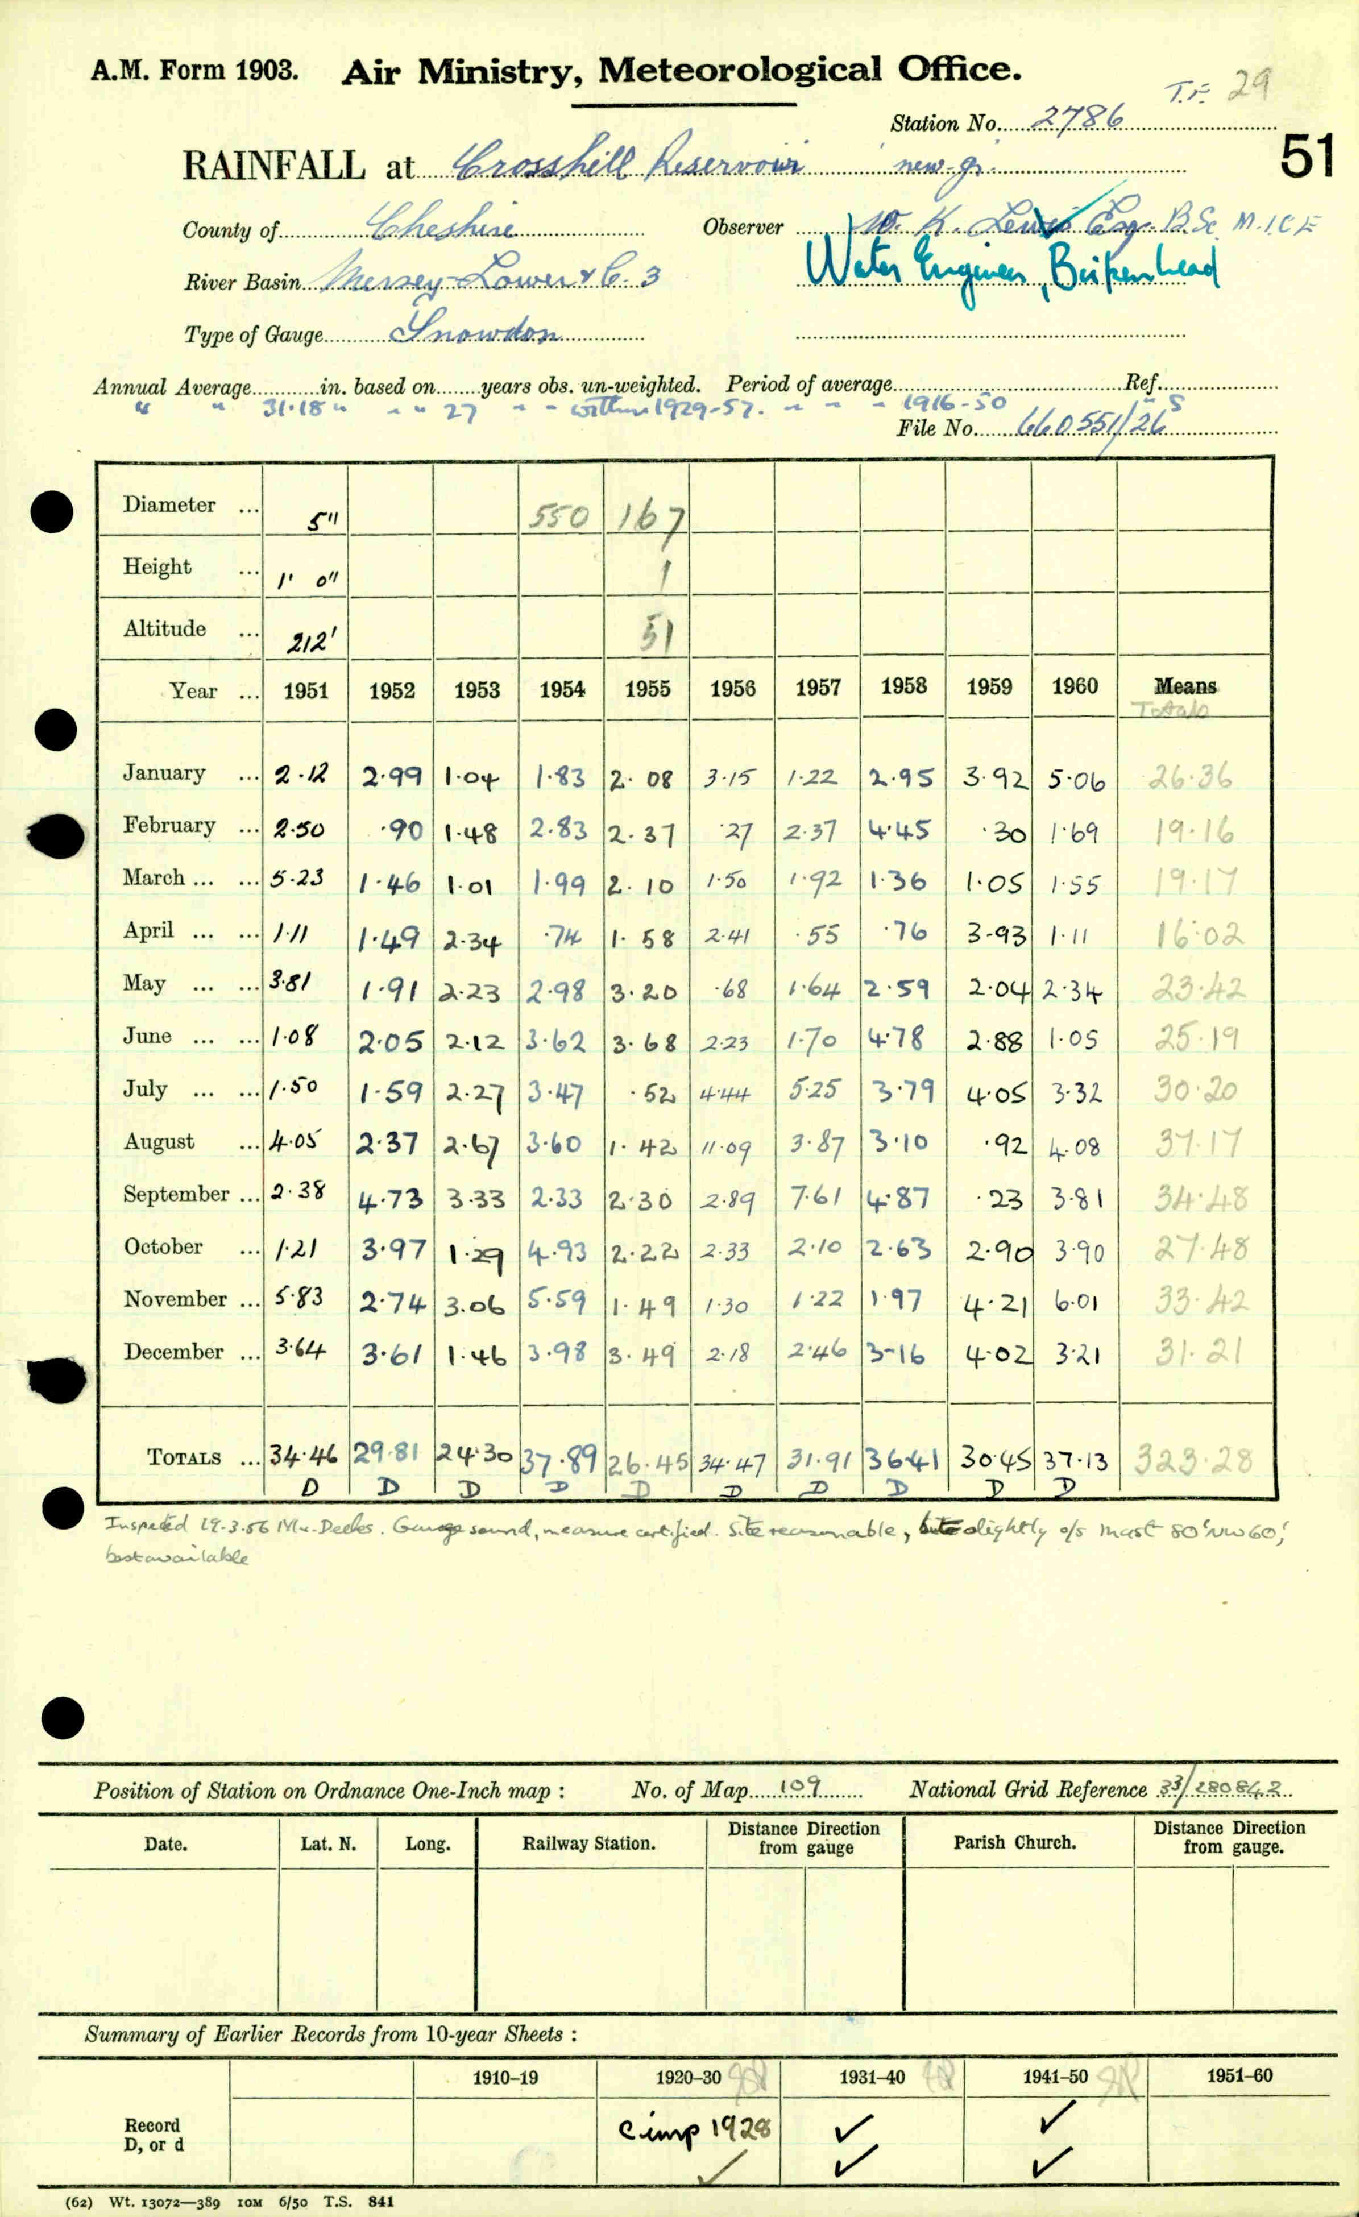 A.M. Form 1903. Air Ministry, Meteorological Office.
T.F. 29
Station No. 2786
51
RAINFALL at Crosshill Reservoir new gi.
County of Cheshire Observer W. K. Lewis Esq. B.Sc. M.I.C.E
River Basin Mersey-Lower & C. 3 Water Engineer, Birkenhead
Type of Gauge Snowdon
Annual Average in. based on years obs. un-weighted. Period of average Ref.
" " 31.18 " " " 27 " " within 1929-57. " " " 1916-50 " S
File No. 660551/26
Diameter ... 5" 550 167
Height ... 1' 0" 1
Altitude ... 212' 51
Year ... 1951 1952 1953 1954 1955 1956 1957 1958 1959 1960 Means
Totals
January ... 2.12 2.99 1.04 1.83 2.08 3.15 1.22 2.95 3.92 5.06 26.36
February ... 2.50 .90 1.48 2.83 2.37 .27 2.37 4.45 .30 1.69 19.16
March ... ... 5.23 1.46 1.01 1.99 2.10 1.50 1.92 1.36 1.05 1.55 19.17
April ... ... 1.11 1.49 2.34 .74 1.58 2.41 .55 .76 3.93 1.11 16.02
May ... ... 3.81 1.91 2.23 2.98 3.20 .68 1.64 2.59 2.04 2.34 23.42
June ... ... 1.08 2.05 2.12 3.62 3.68 2.23 1.70 4.78 2.88 1.05 25.19
July ... ... 1.50 1.59 2.27 3.47 .52 4.44 5.25 3.79 4.05 3.32 30.20
August ... 4.05 2.37 2.67 3.60 1.42 11.09 3.87 3.10 .92 4.08 37.17
September ... 2.38 4.73 3.33 2.33 2.30 2.89 7.61 4.87 .23 3.81 34.48
October ... 1.21 3.97 1.29 4.93 2.22 2.33 2.10 2.63 2.90 3.90 27.48
November ... 5.83 2.74 3.06 5.59 1.49 1.30 1.22 1.97 4.21 6.01 33.42
December ... 3.64 3.61 1.46 3.98 3.49 2.18 2.46 3.16 4.02 3.21 31.21
TOTALS ... 34.46 29.81 24.30 37.89 26.45 34.47 31.91 36.41 30.45 37.13 323.28
D D D D D D D D D D
Inspected 19.3.56 Mr. Deeks. Gauge sound, measure certified. Site reasonable, slightly o/s mast 80' NW 60',
best available
Position of Station on Ordnance One-Inch map : No. of Map 109 National Grid Reference 33/280842
Date. Lat. N. Long. Railway Station. Distance from Direction gauge Parish Church. Distance Direction from gauge.
Summary of Earlier Records from 10-year Sheets :
1910–19 1920–30 1931–40 1941–50 1951–60
Record
D, or d
C imp 1928 ✓ ✓
✓ ✓ ✓
(62) Wt. 13072—389 10M 6/50 T.S. 841